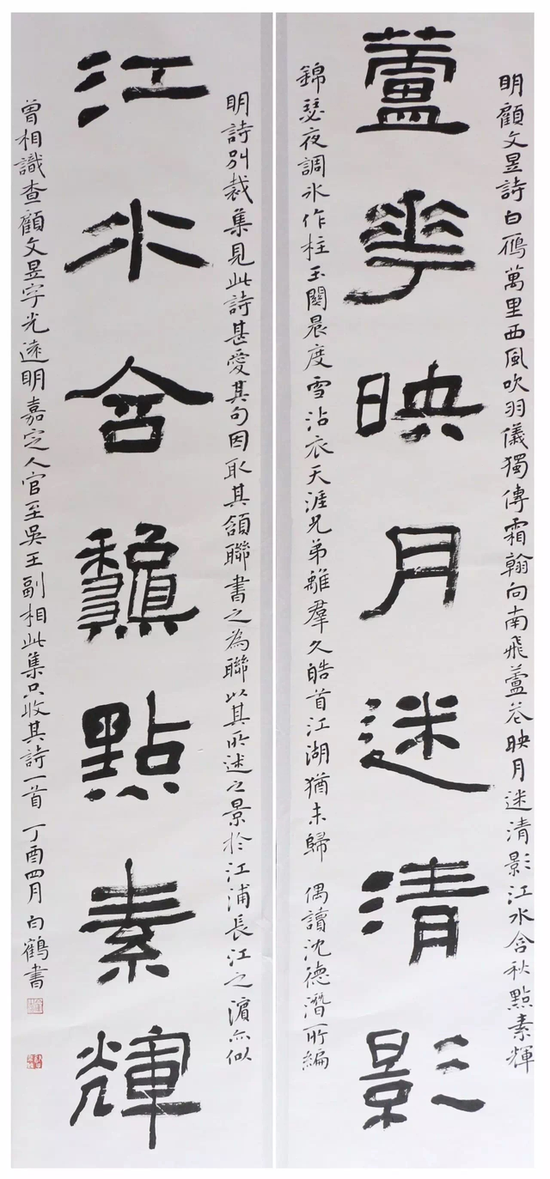 明顧文昱詩白鴈萬里西風吹羽儀獨傳霜翰向南飛蘆花映月迷清影江水含秋點素輝
蘆華映月迷清影
錦瑟夜調氷作柱玉關晨度雪沾衣天涯兄弟離羣久皓首江湖猶未歸 偶讀沈德潛所編
明詩別裁集見此詩甚愛其句因取其頷聯書之為聯以其所述之景於江浦長江之濵亦似
江水含龝點素輝
曾相識查顧文昱字光遠明嘉定人官至吳王副相此集只收其詩一首 丁酉四月 白鶴書